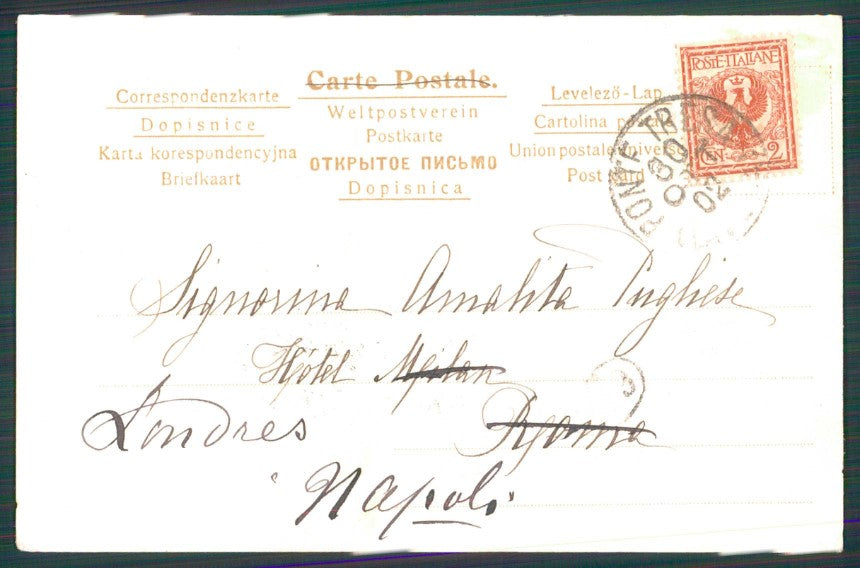 Carte Postale.
Correspondenzkarte
Dopisnice
Karta korespondencyjna
Briefkaart
Weltpostverein
Postkarte
ОТКРЫТОЕ ПИСЬМО
Dopisnica
Levelező-Lap
Cartolina
Union postale
Post card
POSTE·ITALIANE
CEN 2
PONTE TRESA
02
Signorina Amalita Pugliese
Hôtel Milan
Londres
Roma
Napoli